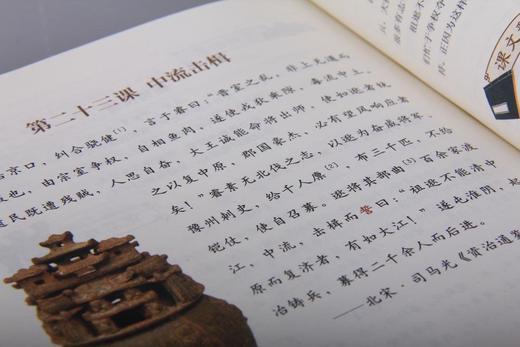 第二十三课 中流击楫
京口，纠合骁健[1]，言于睿曰：“晋室之乱，非上无道而
也，由宗室争权，自相鱼肉，遂使戎狄乘隙，毒流中土。
遗民既遭残贼，人思自奋，大王诚能命将出师，使如逖者统
之以复中原，郡国豪杰，必有望风响应者
矣！”睿素无北伐之志，以逖为奋威将军、
豫州刺史，给千人廪[2]，布三千匹，不给
铠仗，使自召募。逖将其部曲[3]百余家渡
江，中流，击楫而誓曰：“祖逖不能清中
原而复济者，有如大江！”遂屯淮阴，起
冶铸兵，募得二千余人而后进。
——北宋·司马光《资治通鉴
很多有志
们忙于争权夺
样。正因为这样
课文